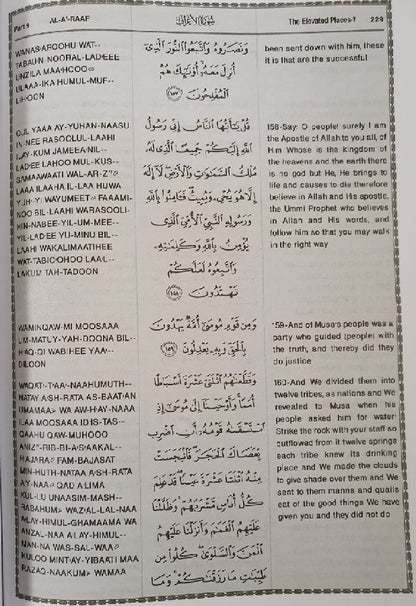 Part 9
AL-A'-RAAF
سُورَةُ الأَعْرَافِ
The Elevated Places-7
229
WANAS-AROOHU WAT--
TABAUN-NOORAL-LADEEE
UNZILA MAA-HOOO
ULAAA-IKA HUMUL-MUF--
LIHOON
وَنَصَرُوهُ وَاتَّبَعُوا النُّورَ الَّذِي
أُنزِلَ مَعَهُ أُولَٰئِكَ هُمُ
الْمُفْلِحُونَ ﴿١٥٧﴾
been sent down with him, these
it is that are the successful
QUL YAAA AY-YUHAN-NAASU
IN-NEE RASOOLUL-LAAHI
ILAY-KUM JAMEEA-NIL--
LADEE LAHOO MUL-KUS--
SAMAAWAATI WAL-AR-Z
LAAA ILAAHA IL-LAA HUWA
YUH-YI WAYUMEET FAAMI-
NOO BIL-LAAHI WARASOOLI-
HIN-NABEE-YIL-UM-MEE--
YIL-LADEE YU-MINU BIL--
LAAHI WAKALIMAATIHEE
WAT-TABIOOHOO LAAL--
LAKUM TAH-TADOON
قُلْ يَا أَيُّهَا النَّاسُ إِنِّي رَسُولُ
اللَّهِ إِلَيْكُمْ جَمِيعًا الَّذِي لَهُ
مُلْكُ السَّمَاوَاتِ وَالْأَرْضِ لَا إِلَٰهَ
إِلَّا هُوَ يُحْيِي وَيُمِيتُ فَآمِنُوا بِاللَّهِ
وَرَسُولِهِ النَّبِيِّ الْأُمِّيِّ الَّذِي
يُؤْمِنُ بِاللَّهِ وَكَلِمَاتِهِ
وَاتَّبِعُوهُ لَعَلَّكُمْ
تَهْتَدُونَ ﴿١٥٨﴾
158-Say: O people! surely I am
the Apostle of Allah to you all, of
Him Whose is the kingdom of
the heavens and the earth there
is no god but He, He brings to
life and causes to die therefore
believe in Allah and His apostle,
the Ummi Prophet who believes
in Allah and His words, and
follow him so that you may walk
in the right way
WAMINQAW-MI MOOSAAA
UM-MATUY-YAH-DOONA BIL--
HAQ-QI WABIHEE YAA--
DILOON
وَمِن قَوْمِ مُوسَىٰ أُمَّةٌ يَهْدُونَ
بِالْحَقِّ وَبِهِ يَعْدِلُونَ ﴿١٥٩﴾
159-And of Musa's people was a
party who guided (people) with
the truth, and thereby did they
do justice
WAQAT-TAA-NAAHUMUTH--
NATAY ASH-RATA AS-BAATAN
UMAMAA WA AW-HAY-NAAA
ILAA MOOSAAA ID IS-TAS--
QAAHU QAW-MUHOOO
ANIZ-RIB-BI-A-SAAKAL--
HAJARA FAM-BAJASAT
MIN-HUTH-NATAA ASH-RATA
AY-NAA QAD ALIMA
KUL-LU UNAASIM-MASH--
RABAHUM WAZAL-LAL-NAA
ALAY-HIMUL-GHAMAAMA WA
ANZAL-NAA ALAY-HIMUL--
MAN-NA WAS-SAL-WAA
KULOO MINT-AY-YIBAATI MAA
RAZAQ-NAAKUM WAMAA
وَقَطَّعْنَاهُمُ اثْنَتَيْ عَشْرَةَ أَسْبَاطًا
أُمَمًا وَأَوْحَيْنَا إِلَىٰ مُوسَىٰ إِذِ
اسْتَسْقَاهُ قَوْمُهُ أَنِ اضْرِب
بِّعَصَاكَ الْحَجَرَ فَانبَجَسَتْ
مِنْهُ اثْنَتَا عَشْرَةَ عَيْنًا قَدْ عَلِمَ
كُلُّ أُنَاسٍ مَّشْرَبَهُمْ وَظَلَّلْنَا
عَلَيْهِمُ الْغَمَامَ وَأَنزَلْنَا عَلَيْهِمُ
الْمَنَّ وَالسَّلْوَىٰ كُلُوا مِن
طَيِّبَاتِ مَا رَزَقْنَاكُمْ وَمَا
160-And We divided them into
twelve tribes, as nations and We
revealed to Musa when his
people asked him for water:
Strike the rock with your staff so
outflowed from it twelve springs
each tribe knew its drinking
place and We made the clouds
to give shade over them and We
sent to them manna and quails
eat of the good things We have
given you and they did not do